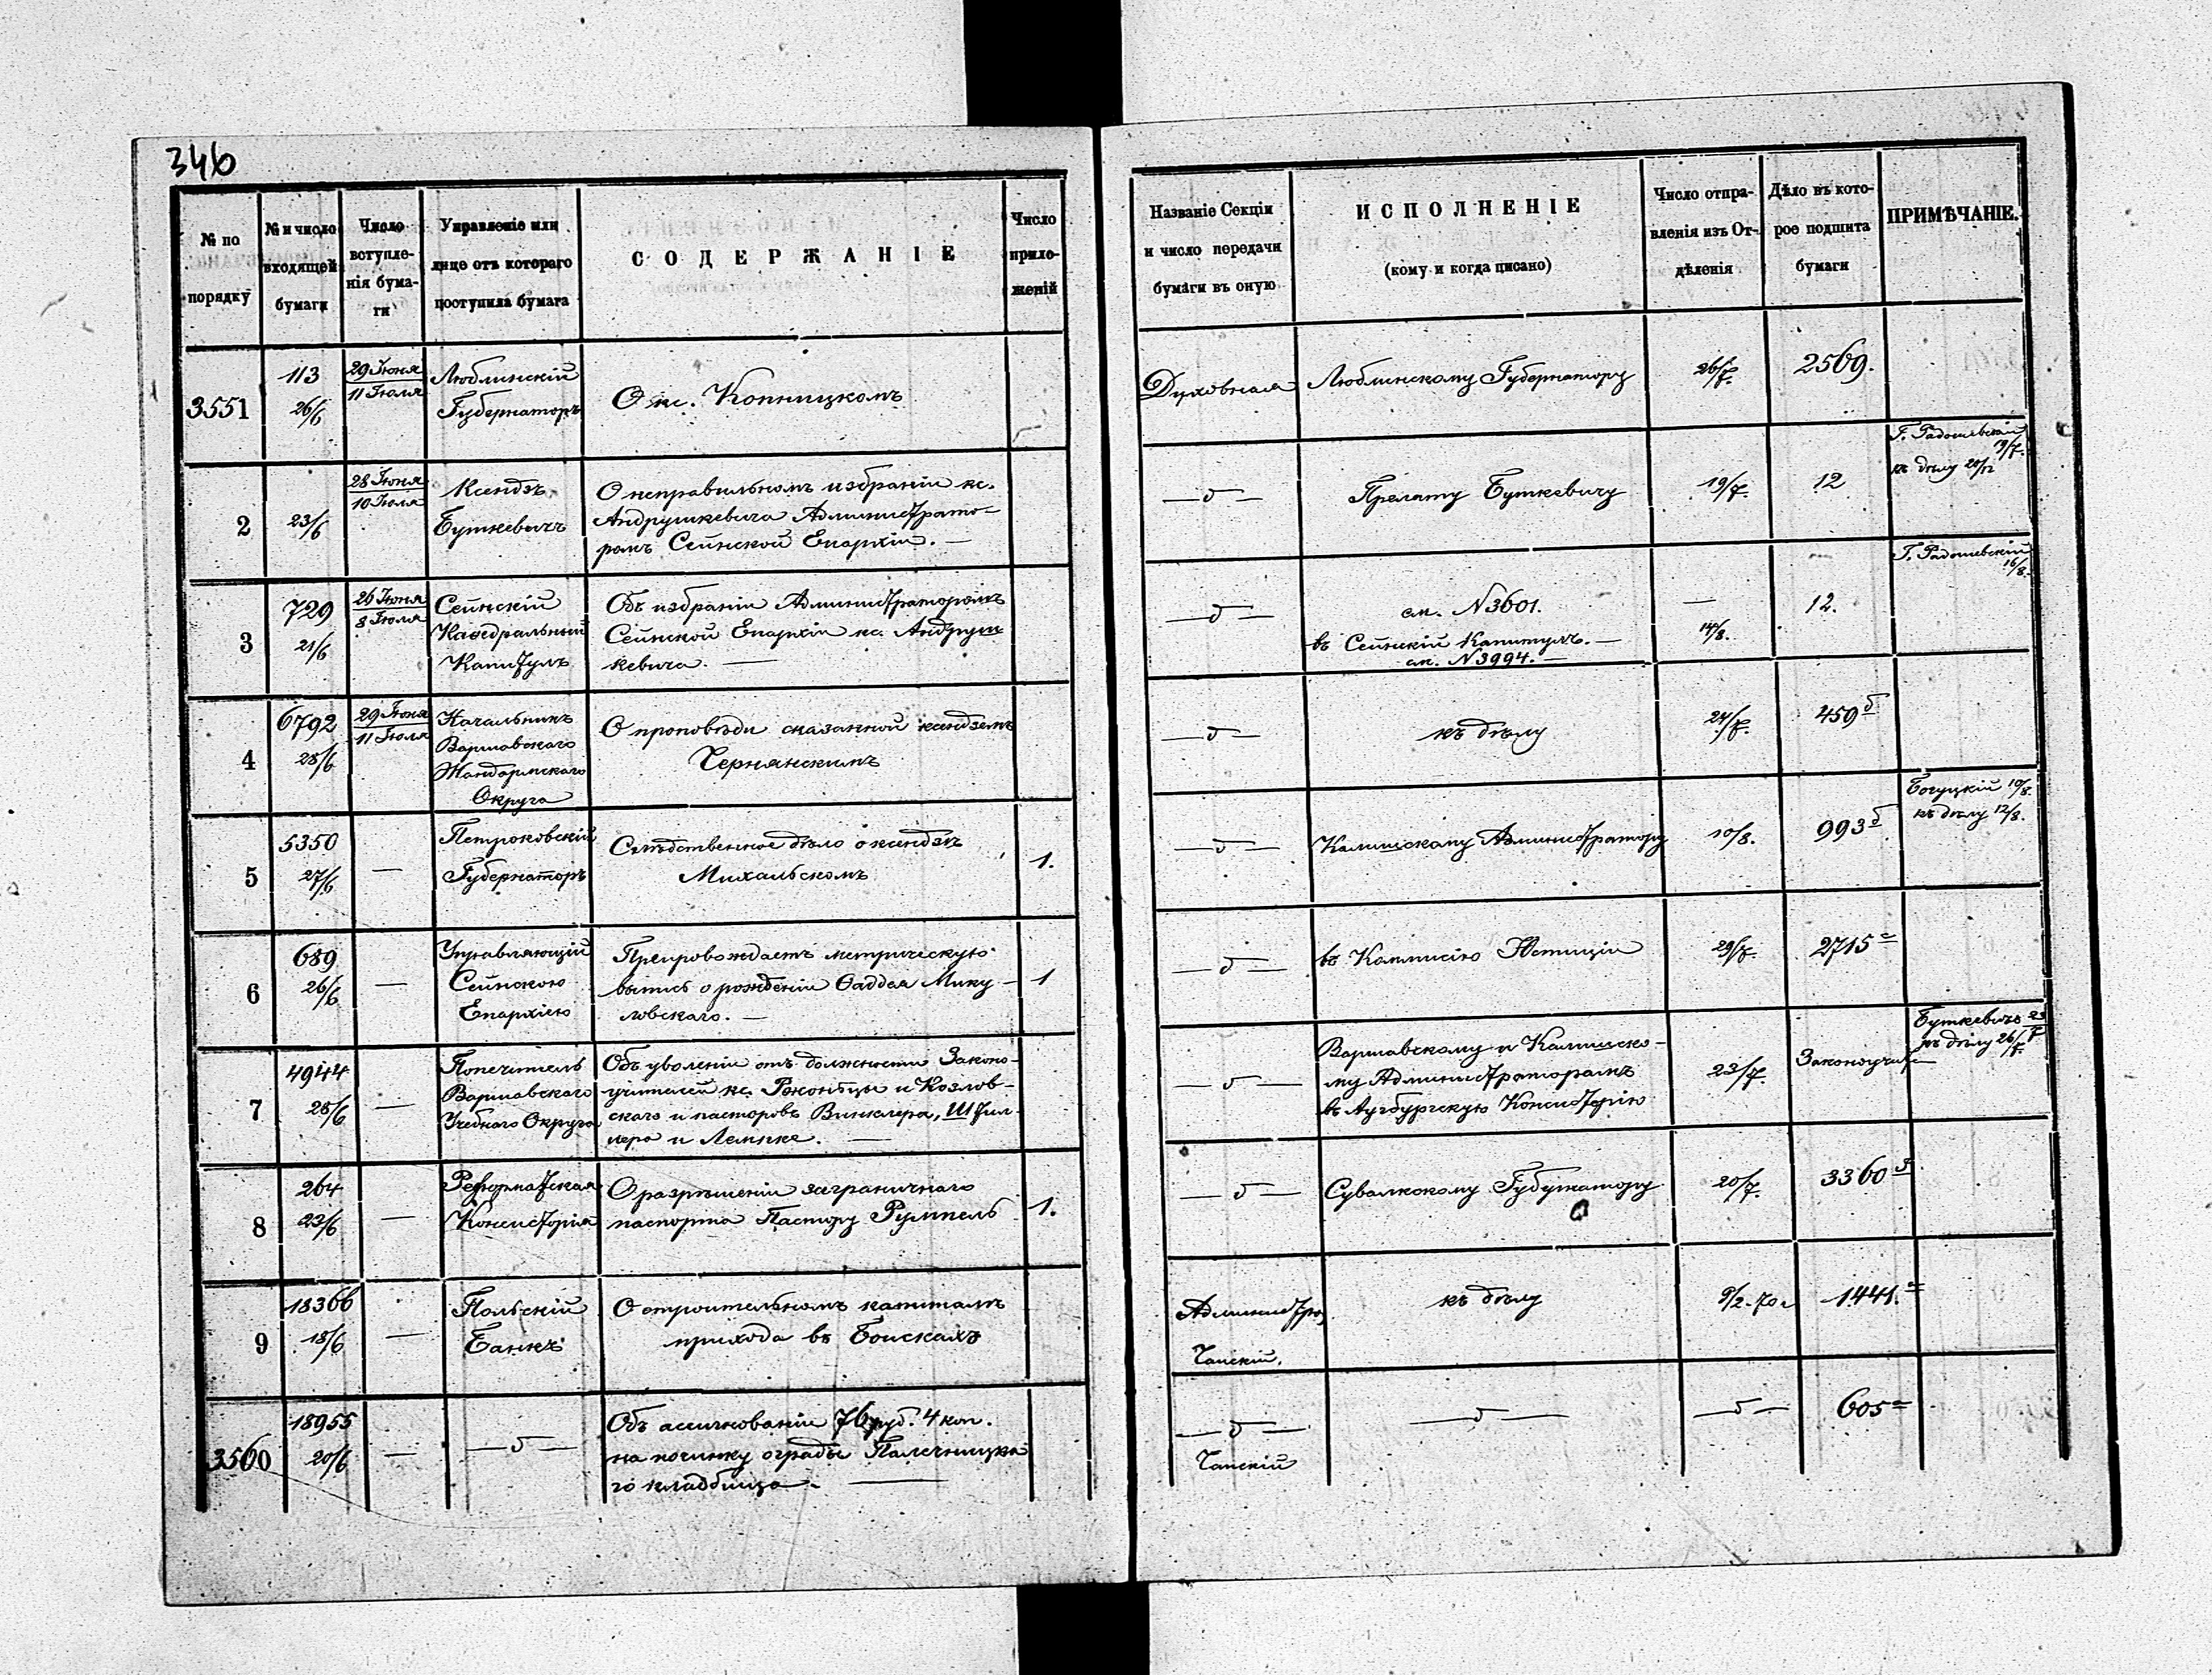 346
№ по
порядку
№ и число
входящей
бумаги
Число
вступле-
нія бума-
ги
Управленіе или
лице отъ котораго
поступила бумага
СОДЕРЖАНІЕ
Число
прило-
женій
Названіе Секціи
и число передачи
бумаги въ оную
ИСПОЛНЕНІЕ
(кому и когда писано)
Число отпра-
вленія изъ От-
дѣленія
Дѣло въ кото-
рое подшита
бумаги
ПРИМѢЧАНІЕ.
3551
113
26/6
29 Іюня
11 Іюля
Люблинскій
Губернаторъ
О кс. Копницкомъ
Духовная
Люблинскому Губернатору
26/7.
2569.
2
23/6
28 Іюня
10 Іюля
Ксендзъ
Буткевичъ
О неправильномъ избраніи кс.
Андрушкевича Администрато-
ромъ Сейнской Епархіи. —
— " —
Прелату Буткевичу
19/7.
12
19/7.
къ дѣлу 20/12
3
729
21/6
26 Іюня
8 Іюля
Сейнскій
Каѳедральный
Капитулъ
Объ избраніи Администраторомъ
Сейнской Епархіи кс. Андруш
кевича. —
— " —
см. N 3601.
въ Сейнскій Капитулъ. —
см. N 3994. —
—
14/8.
12.
16/8.
4
6792
28/6
29 Іюня
11 Іюля
Начальникъ
Варшавскаго
Жандармскаго
Округа
О проповѣди сказанной ксендземъ
Чернянскимъ
— " —
къ дѣлу
24/7.
459 б
5
5350
27/6
—
Петроковскій
Губернаторъ
Слѣдственное дѣло о ксендзѣ
Михальскомъ
1.
— " —
Калишскому Администратору
10/8.
993 б
Богуцкій 10/8.
къ дѣлу 12/8.
6
689
26/6
—
Управляющій
Сейнскою
Епархіею
Препровождаетъ метрическую
выпись о рожденіи Ѳаддея Мику-
ловскаго. —
1
— " —
въ Коммисію Юстиціи
29/7.
2715
7
4944
28/6
—
Попечитель
Варшавскаго
Учебнаго Округа
Объ уволеніи отъ должности Законо-
учителей кс. Рконтцы и Козлов-
скаго и пасторовъ Винклера, Штил-
лера и Лемпке. —
— " —
Варшавскому и Калишско-
му Администраторамъ
въ Аугбургскую Консисторію
23/7.
Законоучит
Буткевичъ 23/7
къ дѣлу 26/7.
8
264
23/6
—
Реформатская
Консисторія
О разрѣшеніи заграничнаго
паспорта Пастору Румпель
1.
— " —
Сувалкскому Губернатору
20/7.
3360
9
18366
18/6
—
Польскій
Банкъ
О строительномъ капиталѣ
прихода въ Боискахъ
Администра
Чапскій.
къ дѣлу
9/2-70 г
1441.
3560
18955
20/6
—
— " —
Объ ассигнованіи 76 руб. 4 коп.
на починку ограды Палечницка
го кладбища. —
— " —
Чапскій
— " —
— " —
605